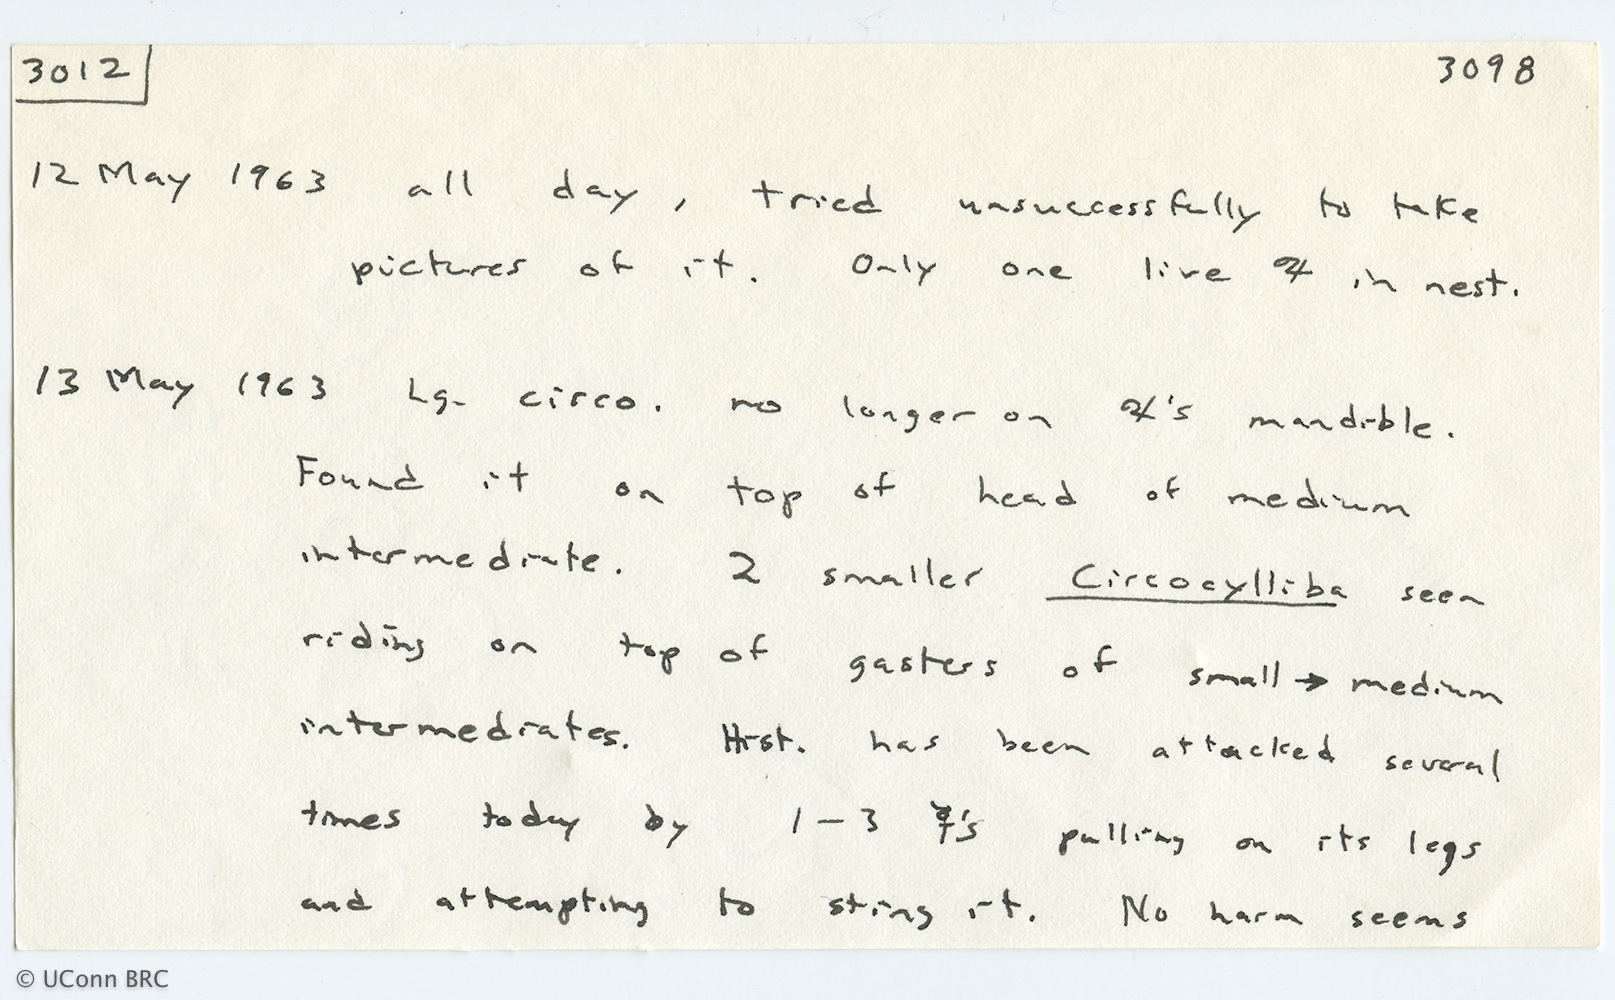 3012 3098
12 May 1963 all day, tried unsuccessfully to take
pictures of it. Only one live ♃ in nest.
13 May 1963 Lg. circo. no longer on ♃'s mandible.
Found it on top of head of medium
intermediate. 2 smaller Circocylliba seen
riding on top of gasters of small → medium
intermediates. Hist. has been attacked several
times today by 1-3 ☿'s pulling on its legs
and attempting to sting it. No harm seems
© UConn BRC